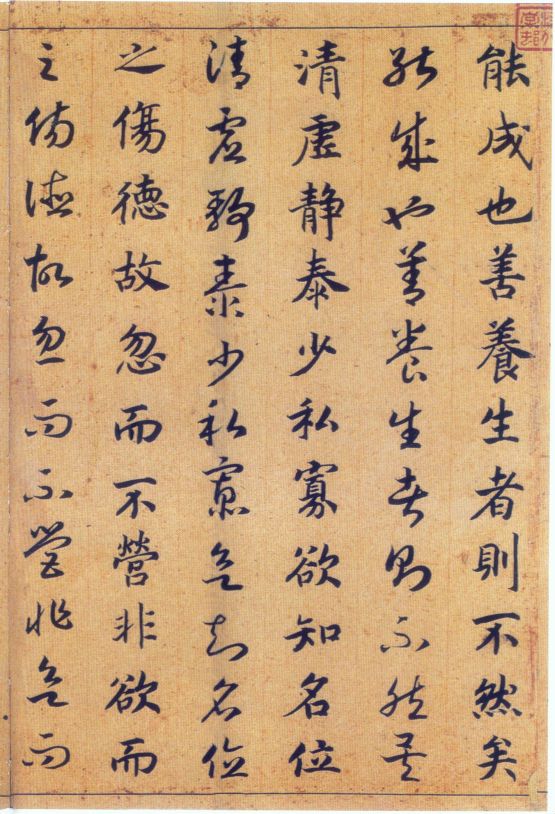 能成也善養生者則不然矣
能成也善養生者則不然矣
清虛靜泰少私寡欲知名位
清虛靜泰少私寡欲知名位
之傷德故忽而不營非欲而
之傷德故忽而不營非欲而